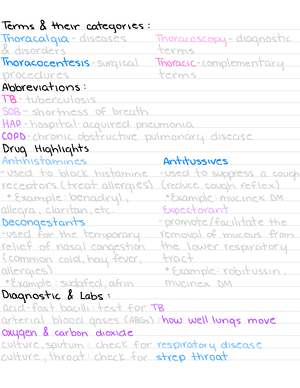 Terms & their categories:
Thoracalgia - diseases & disorders
Thoracoscopy - diagnostic terms
Thoracentesis - surgical procedures
Thoracic - complementary terms
Abbreviations:
TB - tuberculosis
SOB - shortness of breath
HAP - hospital acquired pneumonia
COPD - chronic obstructive pulmonary disease
Drug Highlights
Antihistamines
-used to black histamine
receptors (treat allergies)
*Example: benadryl,
allegra, claritan, etc.
Decongestants
-used for the temporary
relief of nasal congestion
(common cold, hay fever,
allergies)
*Example: sudafed, afrin
Antitussives
-used to suppress a cough
(reduce cough reflex)
*Example: mucinex DM
Expectorant
-promote/facilitate the
removal of mucous from
the lower respiratory
tract
*Example: robitussin,
mucinex DM
Diagnostic & Labs:
acid-fast bacilli: test for TB
arterial blood gases (ABGs): how well lungs move
oxygen & carbon dioxide
culture, sputum: check for respiratory disease
culture, throat: check for strep throat